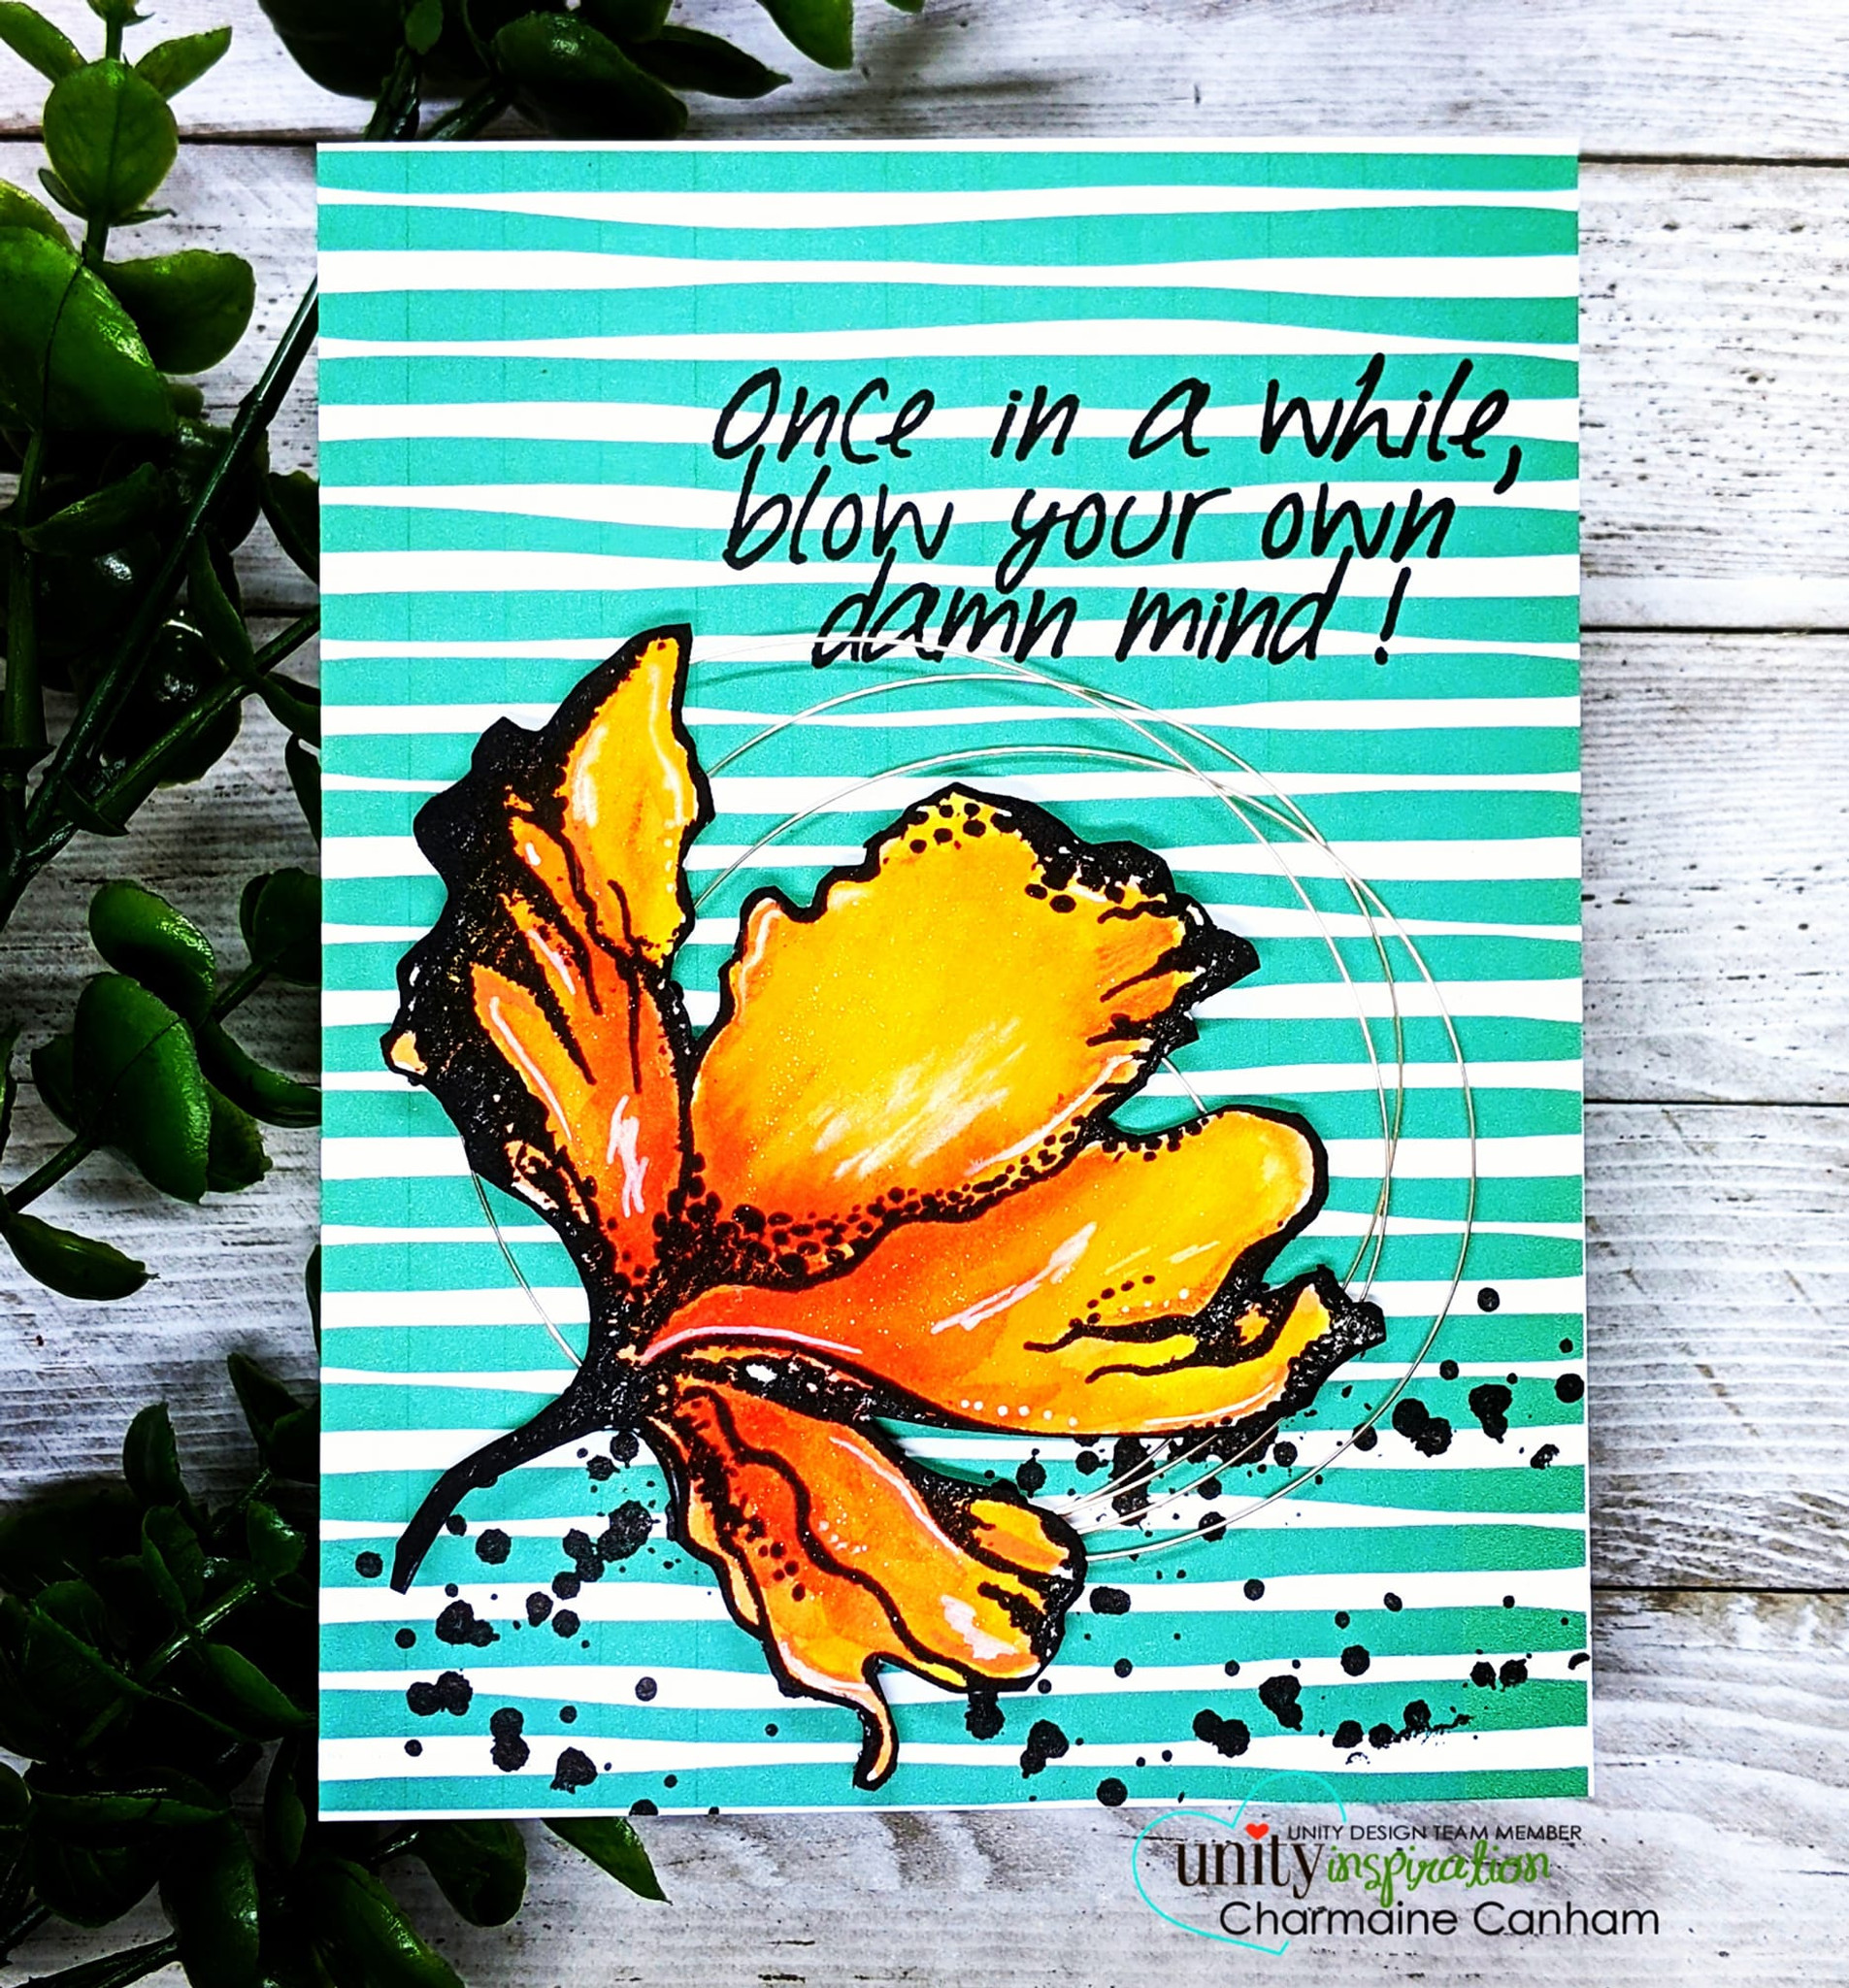 Once in a while,
blow your own
damn mind!
UNITY DESIGN TEAM MEMBER
unity inspiration
Charmaine Canham